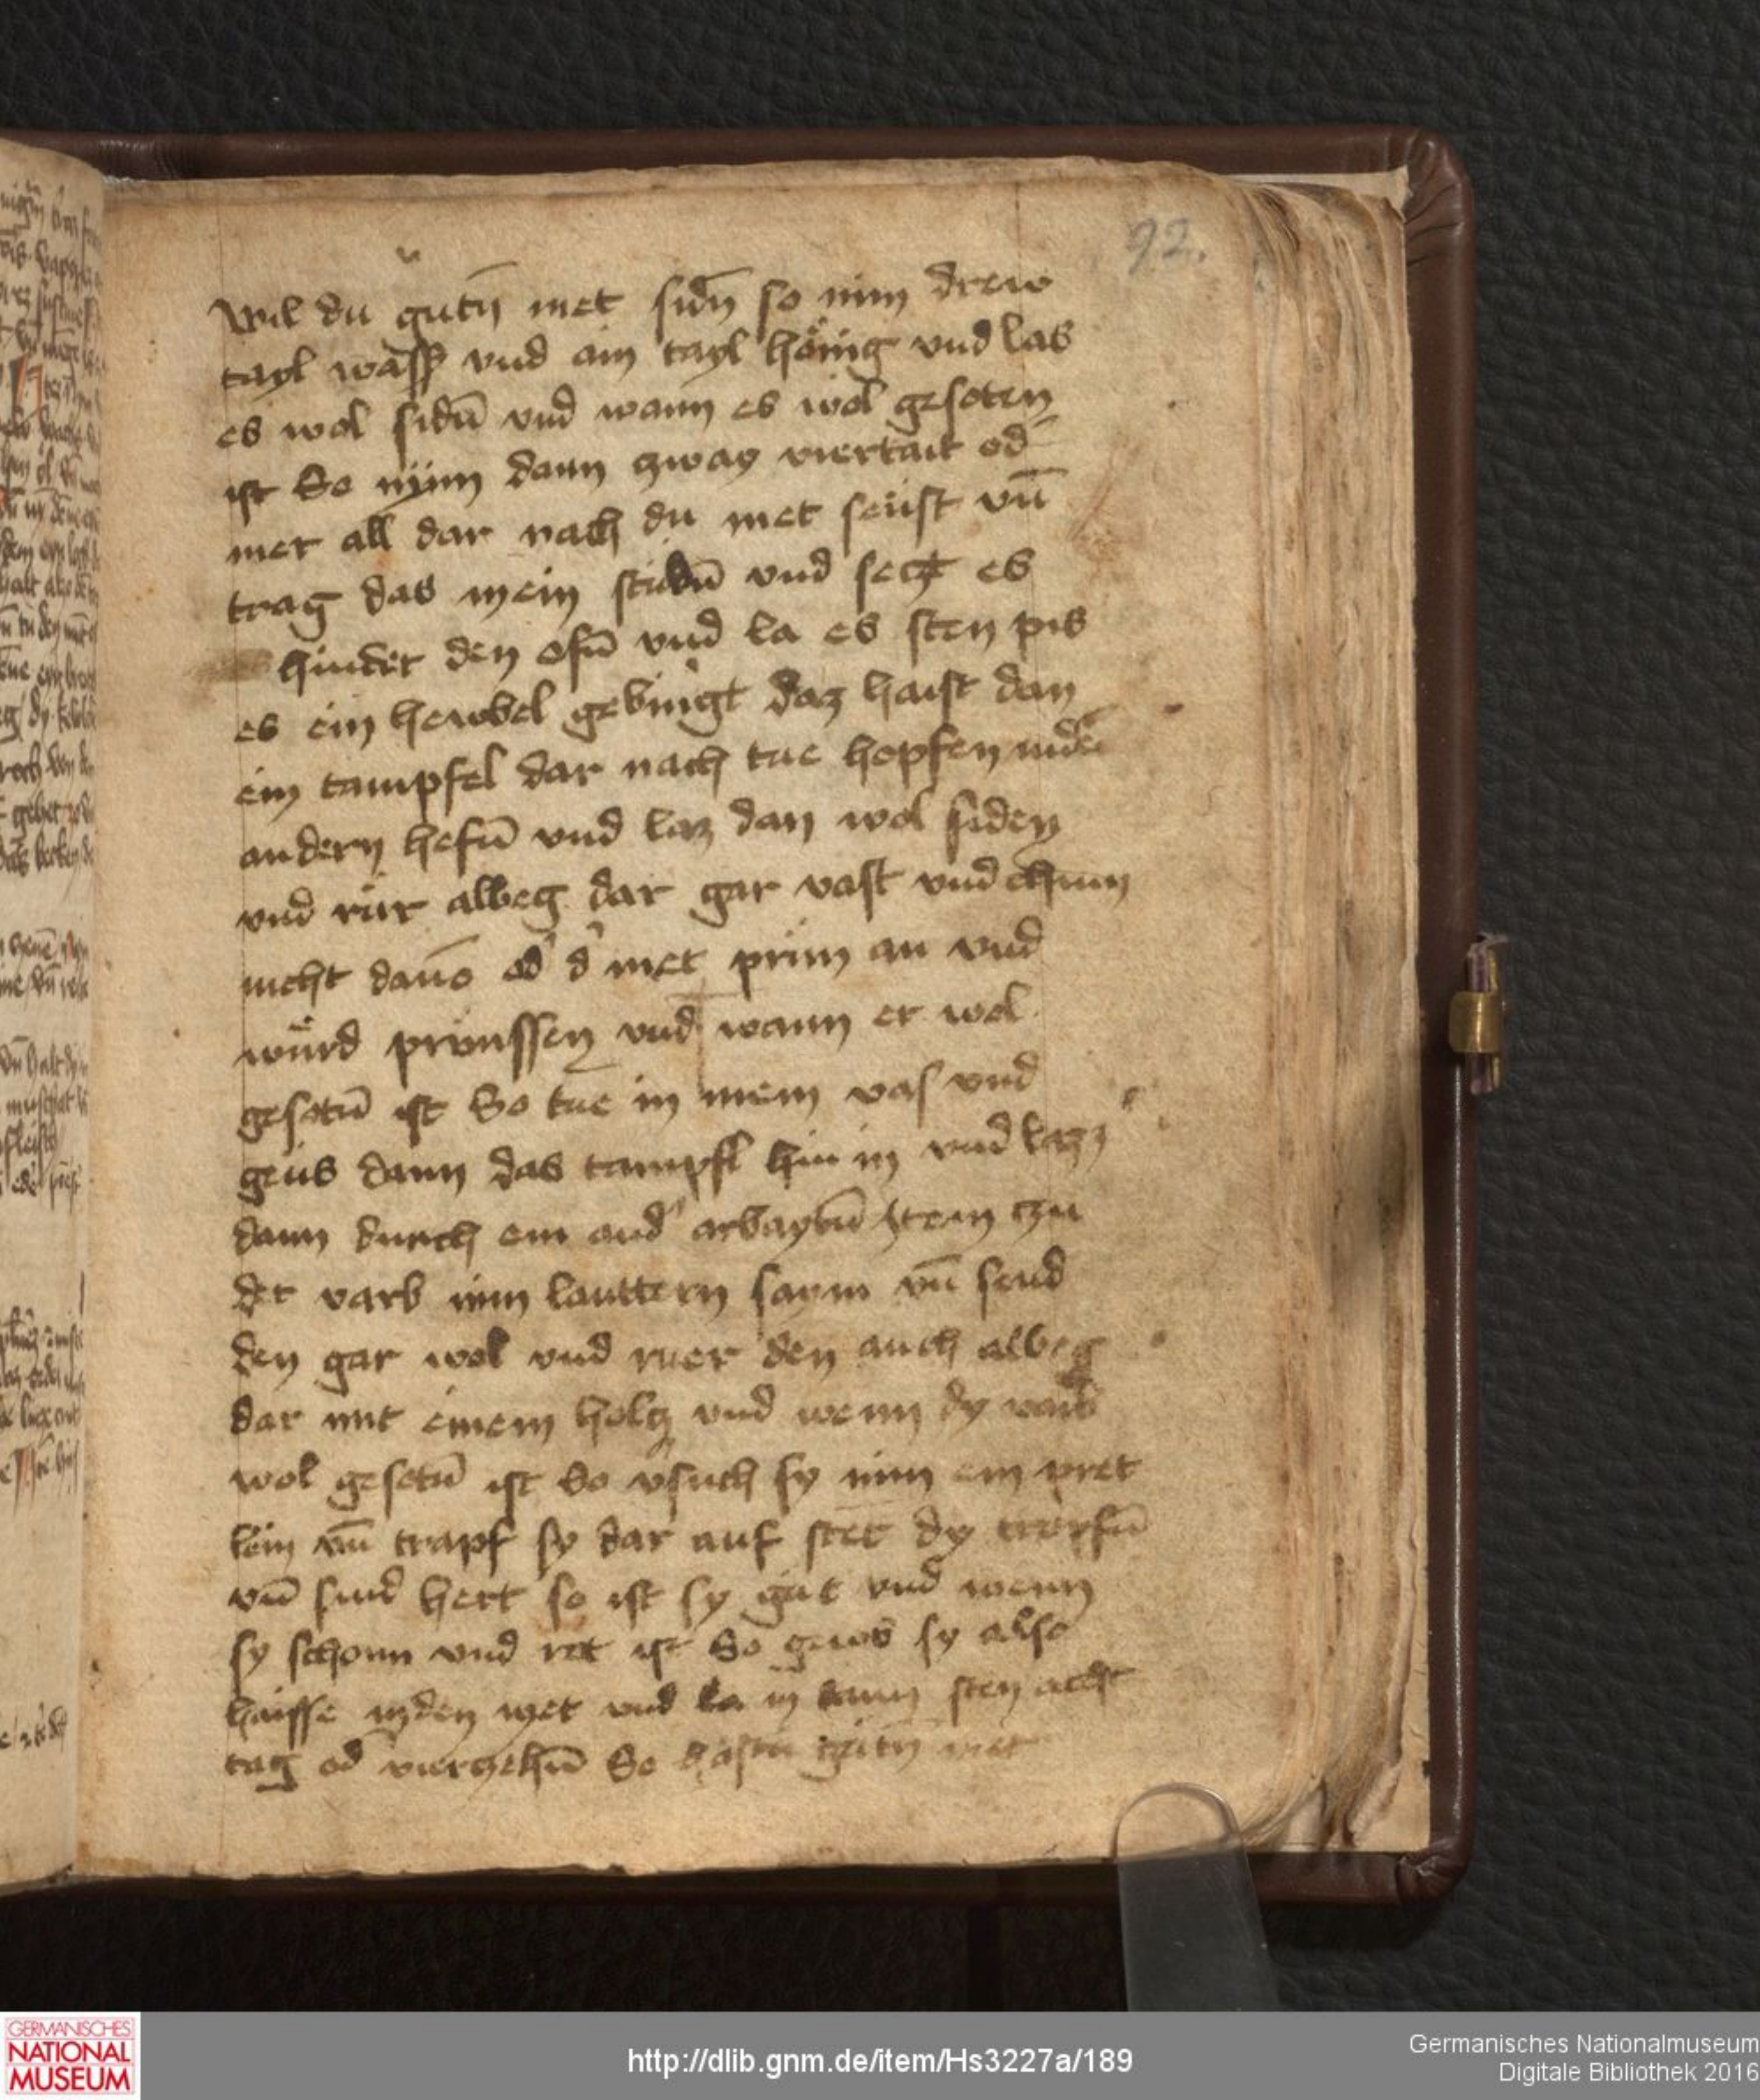 92.
Wil du gutn̄ met sidn̄ so nim drew
tayl wass' vnd ain tayl hönig vnd las
es wol sidn̄ vnd wann es wol gesoten
ist So nÿm dann zway viertail od'
mer all dar nach du met seüst vn̄
trag das in ein stubn̄ vnd secz es
hinder den ofn̄ vnd la es sten pis
es ein hewbel gebingt daz haist dan
ein tampfel dar nach tue hopfen in den
andern hefn̄ vnd laz dan wol siden
vnd rür albeg dar gar vast vnd chum
nicht dauō od' d' met prim an vnd
würd prenssen vnd wann er wol
gesotn̄ ist So tue in in ein vas vnd
geüs dann das tampfl hin in vnd lazz
dann durch ein and' arbaytn̄ Item czu
der varb nim lauttern saym vn̄ seud
den gar wol vnd ruer den auch albeg
dar mit einem holcz vnd wenn dy varb
wol gesotn̄ ist So v'such sy nim ein pret
lein vn̄ trapf sy dar auf stet dy tropfn̄
vn̄ sind hert so ist sy gut vnd wenn
sy schonn vnd rot ist So gews sy also
haisse in den met vnd la in dann sten acht
tag od' vierzehn̄ So hastu gutn̄ met
GERMANISCHES
NATIONAL
MUSEUM
http://dlib.gnm.de/item/Hs3227a/189
Germanisches Nationalmuseum
Digitale Bibliothek 2016